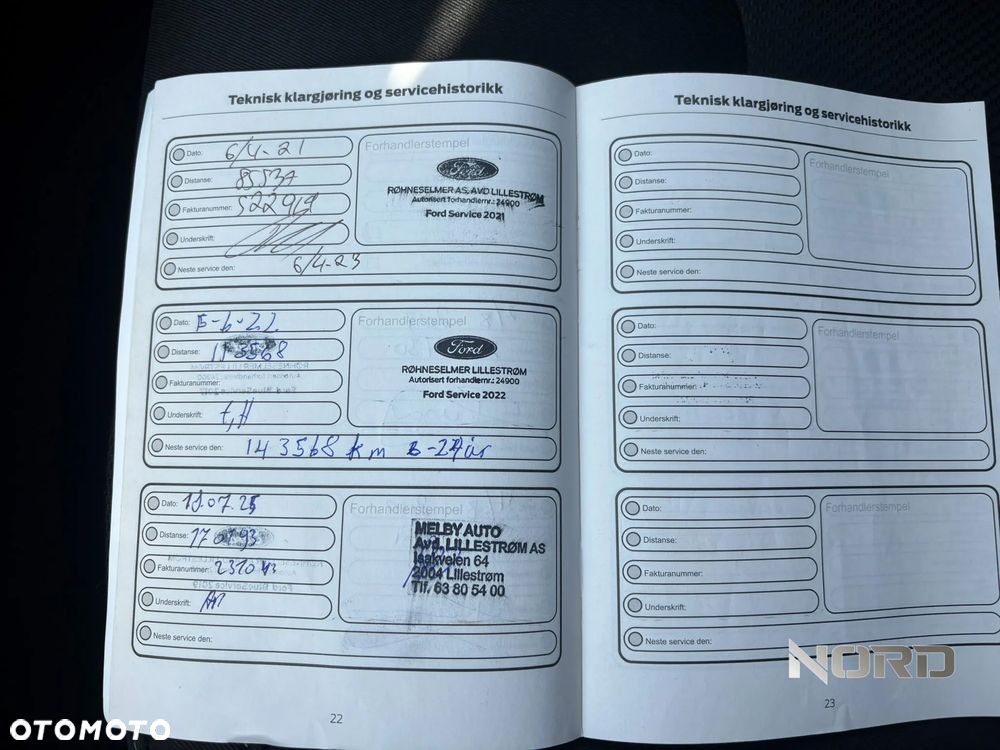 Teknisk klargjøring og servicehistorikk
Dato: 6/4-21
Distanse: 85537
Fakturanummer: 522919
Underskrift:
Neste service den: 6/4-23
Forhandlerstempel
Ford
RØHNESELMER AS, AVD LILLESTRØM
Autorisert forhandlernr.: 24900
Ford Service 2021
Dato: 5-6-22
Distanse: 113568
Fakturanummer:
Underskrift:
Neste service den: 143568 km
Forhandlerstempel
Ford
RØHNESELMER LILLESTRØM
Autorisert forhandlernr.: 24900
Ford Service 2022
Dato:
Distanse:
Fakturanummer: 231043
Underskrift:
Neste service den:
Forhandlerstempel
MELBY AUTO
Avd. LILLESTRØM AS
Isakveien 64
2004 Lillestrøm
Tlf. 63 80 54 00
22
Teknisk klargjøring og servicehistorikk
Dato:
Distanse:
Fakturanummer:
Underskrift:
Neste service den:
Forhandlerstempel
Dato:
Distanse:
Fakturanummer:
Underskrift:
Neste service den:
Forhandlerstempel
Dato:
Distanse:
Fakturanummer:
Underskrift:
Neste service den:
Forhandlerstempel
23
NORD
OTOMOTO